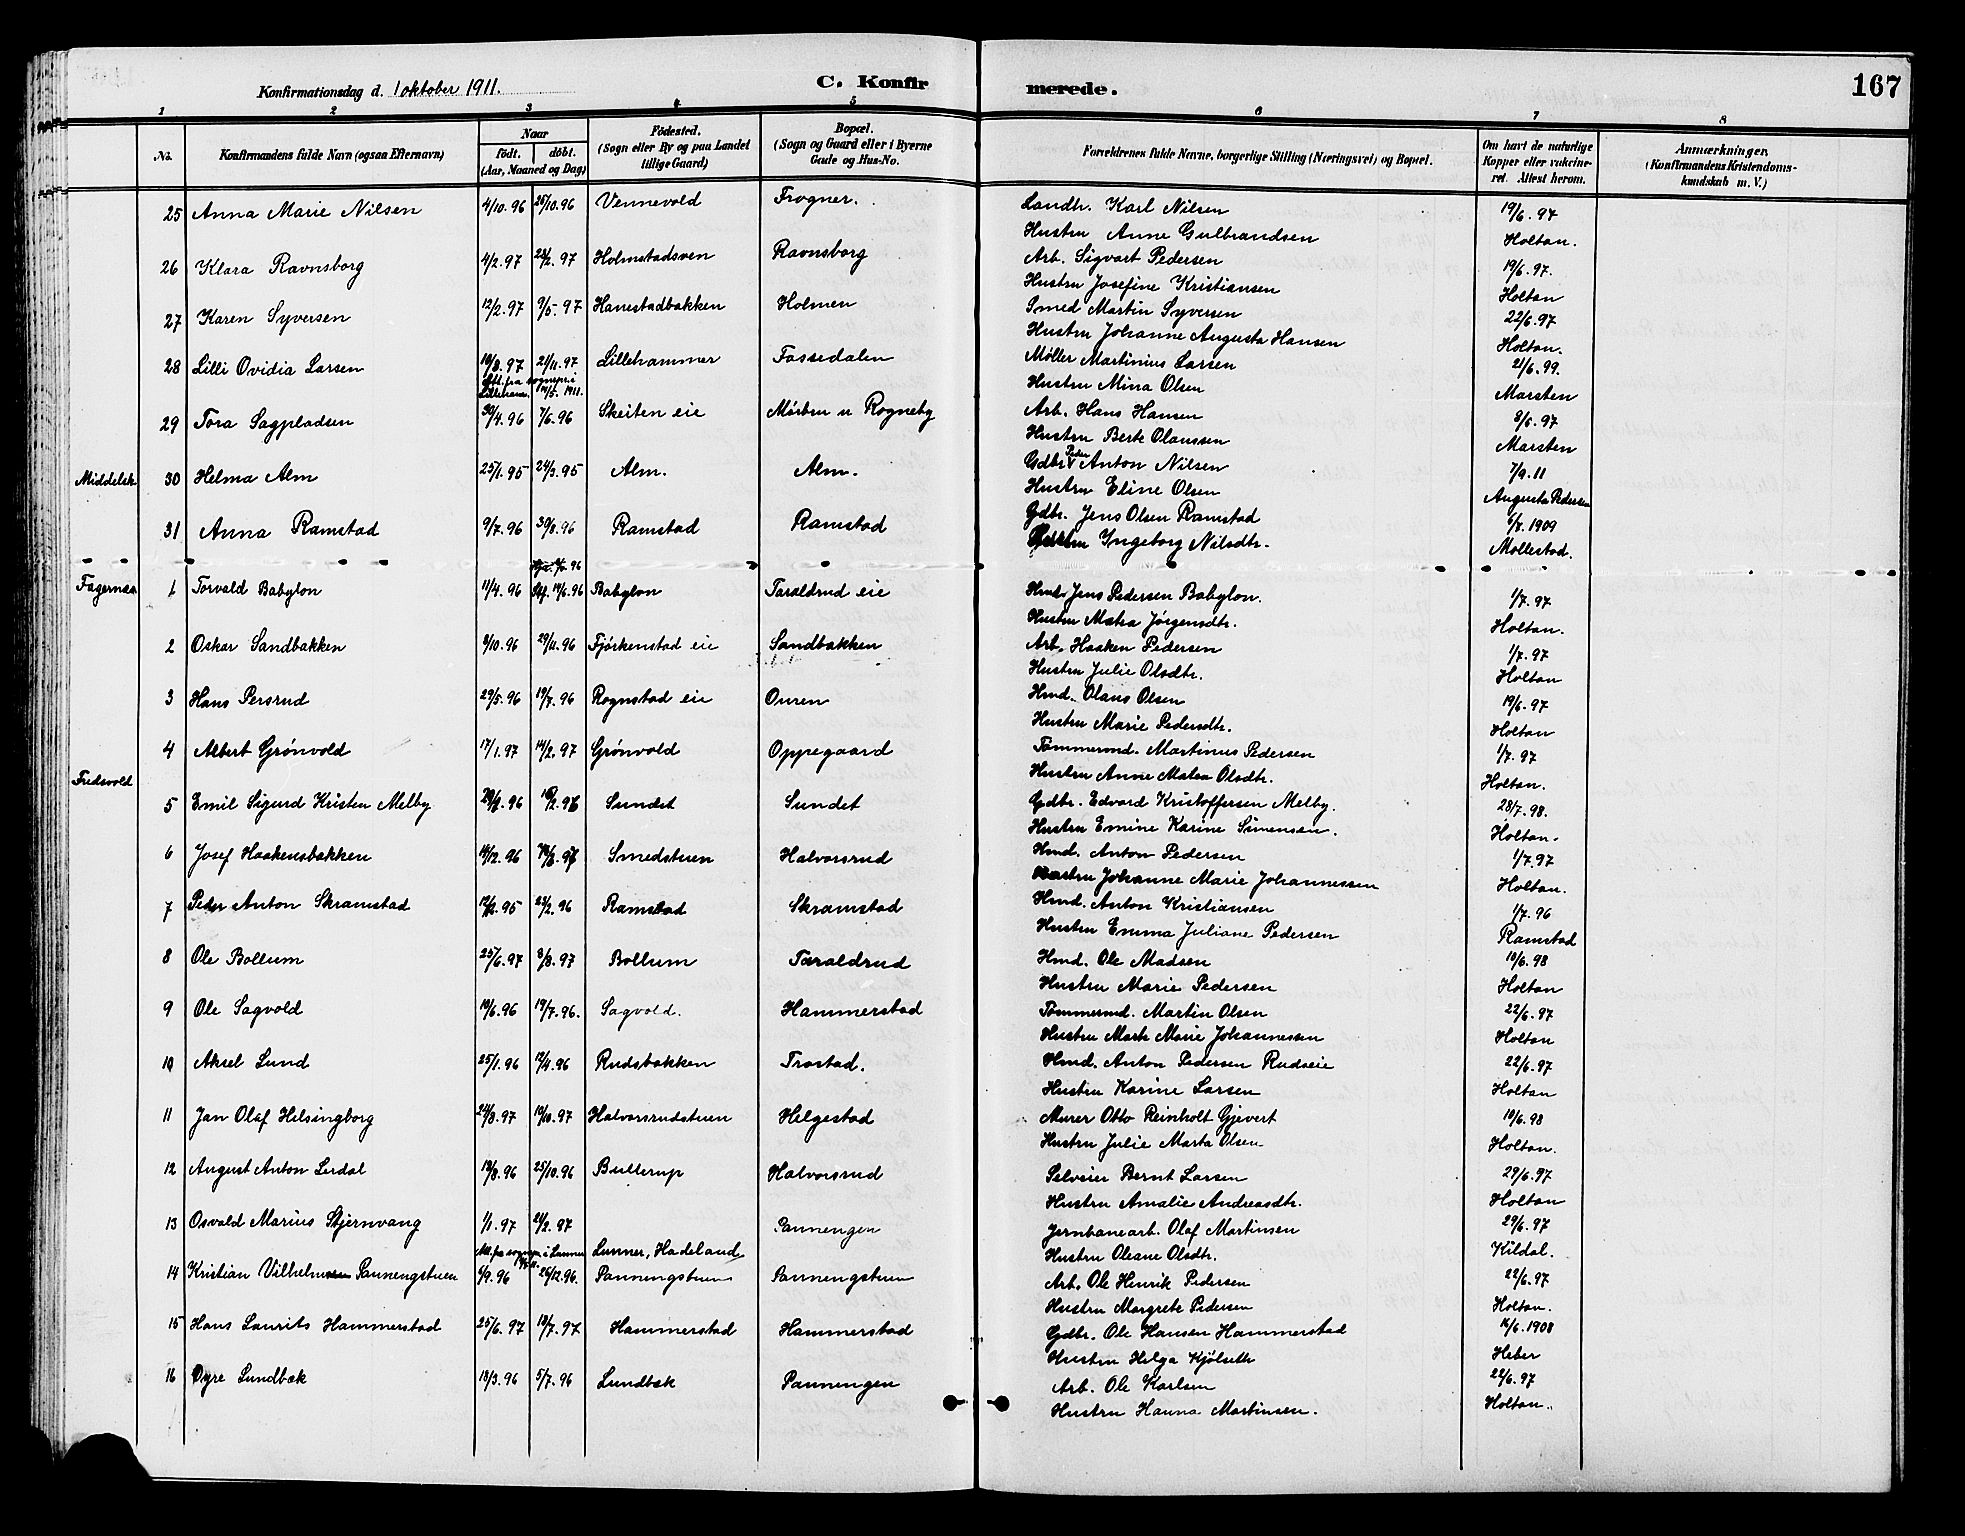 Konfirmationsdag d. 1 oktober 1911. C. Konfirmerede. 167
1 2 3 4 5 6 7 8
No. Konfirmandens fulde Navn (ogsaa Efternavn) Naar født. døbt. (Aar, Maaned og Dag) Fødested. (Sogn eller By og paa Landet tillige Gaard) Bopæl. (Sogn og Gaard eller i Byerne Gade og Hus-No. Forældrenes fulde Navne, borgerlige Stilling (Næringsvei) og Bopæl. Om havt de naturlige Kopper eller vakcineret. Attest herom. Anmærkninger. (Konfirmandens Kristendomskundskab m. V.)
25 Anna Marie Nilsen 4/10.96 25/10.96 Vennevold Frogner. Landh. Karl Nilsen 19/6.97
Hustru Anne Gulbrandsen Holtan.
26 Klara Ravnsborg 4/2.97 28/2.97 Holmstadsven Ravnsborg Arb. Sigvart Pedersen 19/6.97.
Hustru Josefine Kristiansen Holtan
27 Karen Syversen 12/2.97 9/5.97 Hanestadbakken Holmen Smed Martin Syversen 22/6.97
Hustru Johanne Augusta Hansen Holtan.
28 Lilli Ovidia Larsen 10/8.97 21/11.97 Lillehammer Fossedalen Møller Martinius Larsen 21/6.99.
Att. fra sognepr. i Lilleham. 14/5.1911. Hustru Mina Olsen Marsten
29 Tora Sagpladsen 30/4.96 7/6.96 Skeiten eie Mørben u Rogneby Arb. Hans Hansen 8/6.97
Hustru Berte Olaussen Marsten
Middelsk 30 Helma Alm 25/1.95 24/3.95 Alm. Alm. Gdbr. Peder Anton Nilsen 7/9.11
Hustru Eline Olsen Augusta Pedersen
31 Anna Ramstad 9/7.96 30/8.96 Ramstad Ramstad Gdbr. Jens Olsen Ramstad 6/8.1909
Hustru Ingeborg Nilsdtr. Møllestad.
Fagernæs 1 Torvald Babylon 11/4.96 Stf. 14/6.96 Babylon Taraldrud eie Hmd. Jens Pedersen Babylon. 1/7.97
Hustru Matea Jørgensdtr. Holtan.
2 Oskar Sandbakken 8/10.96 29/11.96 Fjørkenstad eie Sandbakken Arb. Haaken Pedersen 1/7.97
Hustru Julie Olsdtr. Holtan
3 Hans Persrud 29/5.96 19/7.96 Rognstad eie Ouren Hmd. Olaus Olsen 19/6.97
Hustru Marie Pedersdtr. Holtan
4 Albert Grønvold 17/1.97 14/2.97 Grønvold Oppegaard Tømmermd. Martinus Pedersen 1/7.97
Hustru Anne Matea Olsdtr. Holtan.
Fredsvold
5 Emil Sigurd Kristen Melby Sundet Sundet Gdbr. Edvard Kristoffersen Melby. 28/7.98.
Hustru Emine Karine Simensen. Holtan.
6 Josef Haakensbakken 14/12.96 Smedstuen Halvorsrud Hmd. Anton Pedersen 1/7.97
Hustru Johanne Marie Johannessen Holtan.
7 Peder Anton Skramstad 12/12.95 23/2.96 Ramstad Skramstad Hmd. Anton Kristiansen 1/7.96
Hustru Emma Juliane Pedersen Ramstad
8 Ole Bollum 25/6.97 8/8.97 Bollum Taraldrud Hmd. Ole Madsen 10/6.98
Hustru Marie Pedersen Holtan
9 Ole Sagvold 10/6.96 19/7.96. Sagvold. Hammerstad Tømmermd. Martin Olsen 22/6.97
Hustru Marte Marie Johannessen Holtan
10 Aksel Lund 25/1.96 12/4.96 Rudsbakken Trostad. Hmd. Anton Pedersen Rudseie 22/6.97
Hustru Karine Larsen Holtan
11 Jan Olaf Helsingborg 24/8.97 10/10.97 Halvorsrudstuen Helgestad Murer Otto Reinholt Gjevert 10/6.98
Hustru Julie Marta Olsen Holtan.
12 August Anton Lerdal 19/8.96 25/10.96 Bullerup Halvorsrud Selveier Bernt Larsen 29/6.97
Hustru Amalie Andreasdtr. Holtan
13 Osvald Marius Stjernvang 1/1.97 21/2.97 Lunner, Hadeland Pannengen Jernbanearb. Olaf Martinsen 29/6.97
Att. fra sognepr. i Lunner Hustru Oleane Olsdtr. Kildal.
14 Kristian Vilhelm Pannengstuen 6/9.96 26/12.96. Pannengstuen Pannengstuen Arb. Ole Henrik Pedersen 22/6.97
Hustru Margrete Pedersen Holtan.
15 Hans Laurits Hammerstad 25/6.97 18/7.97 Hammerstad Hammerstad Gdbr. Ole Hansen Hammerstad 16/6.1908
Hustru Helga Kjølseth Heber
16 Dyre Lundbæk 18/3.96 5/7.96 Lundbæk Panningen Arb. Ole Karlsen 22/6.97
Hustru Hanna Martinsen. Holtan.